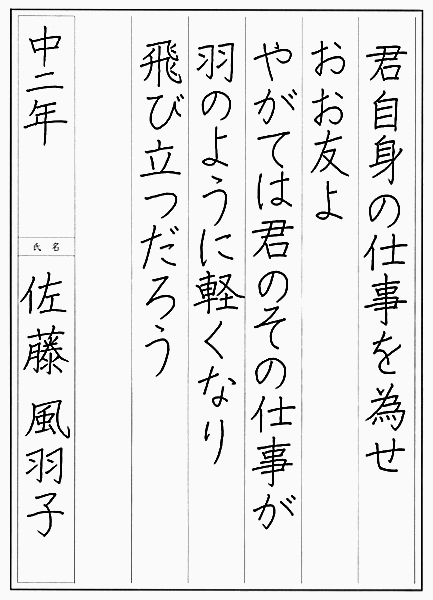 君自身の仕事を為せ
おお友よ
やがては君のその仕事が
羽のように軽くなり
飛び立つだろう
中二年
氏名
佐藤 風羽子